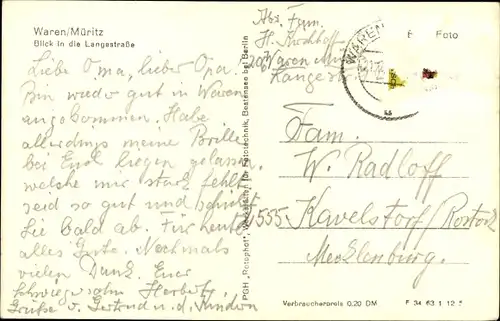 Waren/Müritz
Blick in die Langestraße
Liebe Oma, lieber Opa!
Bin wieder gut in Waren
angekommen. Habe
allerdings meine Brille
bei Euch liegen gelassen,
welche mir stark fehlt,
seid so gut und schickt
Sie bald ab. Für heute
alles Gute. Nochmals
vielen Dank. Euer
Schwiegersohn Herbert
Grüße v. Gertrud u. d. Kindern
PGH „Rotophot“, Werkstätten für Fototechnik, Bestensee bei Berlin
Abs. Fam.
H. Kirchhoff
206 Waren Mür
Langestr
WAREN
Foto
Fam.
W. Radloff
2555 Kavelstorf/Rostock
Mecklenburg.
Verbraucherpreis 0,20 DM
F 34 63 1 12 5